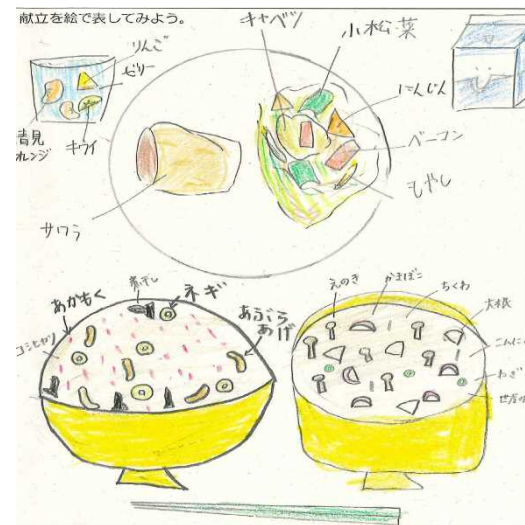 献立を絵で表してみよう。
りんご
ゼリー
青見
オレンジ
キウイ
キャベツ
小松菜
にんじん
ベーコン
もやし
サワラ
あかもく
煮干し
ネギ
あぶら
あげ
コシヒカリ
えのき
かまぼこ
ちくわ
大根
こんに
ねぎ